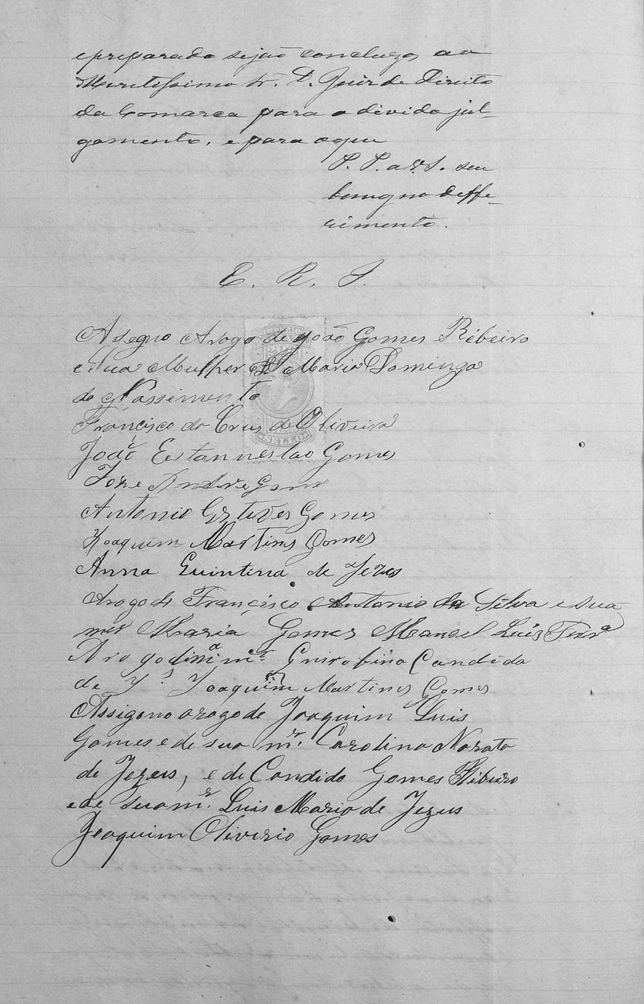 epreparado sejão concluzo, ao
Meretissimo Sr. D. Juis de Direito
da Comarca para o divido jul-
gamento, e para oque
P. P. a V. S. seu
benigno deffe-
rimento.
E. R. J.
Asegno Arogo de João Gomes Ribeiro
e sua Mulher D. Maria Dominga
do Nassimento
Francisco da Crus de Oliveira
João Estanneslao Gomes
Joze Andre Gomes
Antonio Esteves Gomes
Joaquim Martins Gomes
Anna Quinteria de Jezus
Arogo de Francisco Antonio da Silva e sua
mer Maria Gomes Manoel Luis Ferra
Arogo Candida
de Js Joaquim Martins Gomes
Assigno arogo de Joaquim Luis
Gomes e de sua mr. Carolina Nozata
de Jezus, e de Candido Gomes Ribeiro
e de sua mr. Luis Maria de Jezus
Joaquim Oliverio Gomes